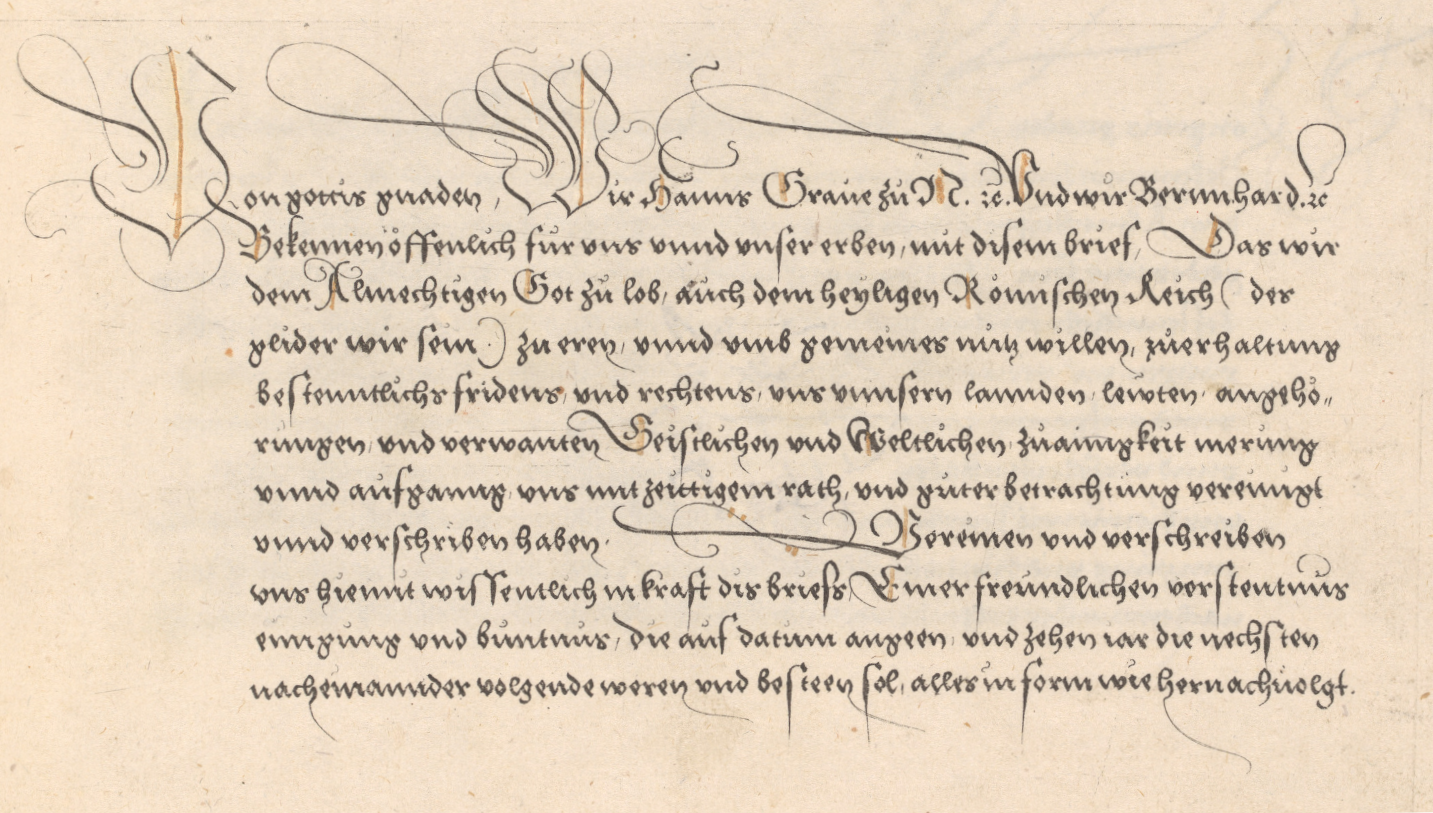 Von gottis gnaden, Wir Hanns Graue zů N. ꝛc. Vnd wir Bernnhard. ꝛc
Bekennen offenlich fur vns vnnd vnser erben, mit disem brief, Das wir
dem Almechtigen Got zů lob, auch dem heyligen Römischen Reich ( des
glider wir sein ) zu eren, vnnd vmb gemeines nutz willen, zůerhaltung
bestenntlichs fridens, vnd rechtens, vns vnnsern lannden, lewten, angehö„
rungen, vnd verwanten Geistlichen vnd Weltlichen, zuainigkeit merung
vnnd aufganng, vns mit zeittigem rath, vnd gůter betrachtung vereinigt
vnnd verschriben haben. Vereinen vnd verschreiben
vns hiemit wissentlich in kraft dis briefs, Einer freundlichen verstentnus
einigung vnd buntnus, die auf datum angeen, vnd zehen iar die nechsten
nacheinannder volgende weren vnd besteen sol, alles in form wie hernachuolgt.